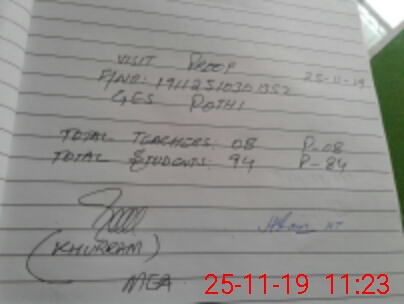 VISIT PROOF
25-11-19
GES POTHI
TOTAL TEACHERS: 08 P-08
TOTAL STUDENTS: 94 P-84
(KHURRAM)
MEA
25-11-19 11:23